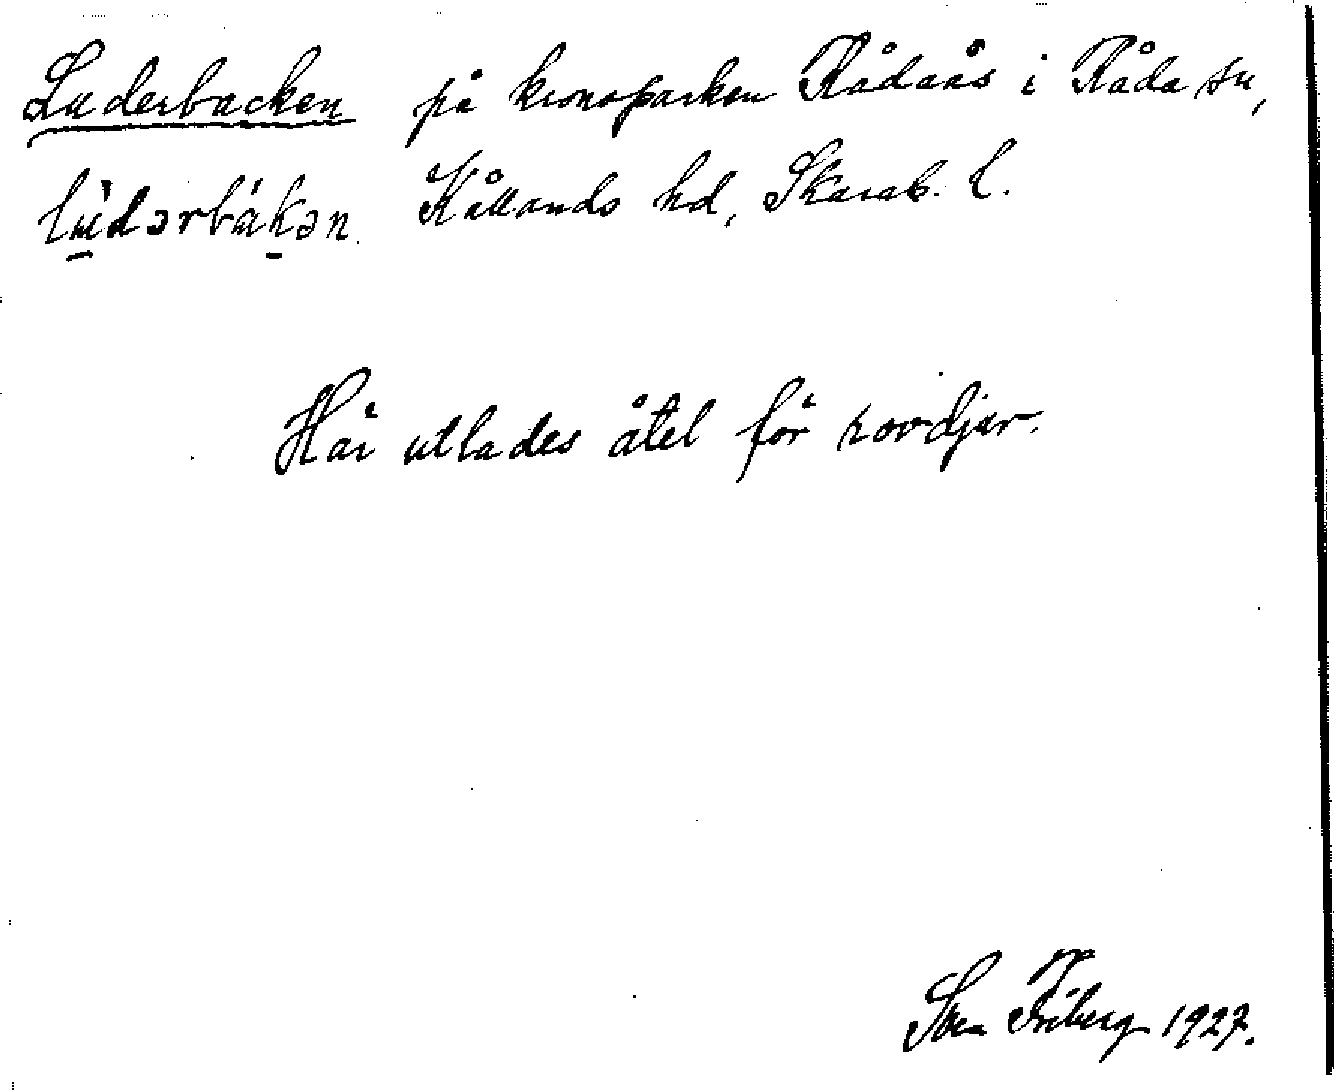 Luderbacken på kronoparken Rådaås i Råda sn,
lùdərbákən. Kållands hd, Skarab. l.
Här utlades åtel för rovdjur.
Sven Friberg 1927.